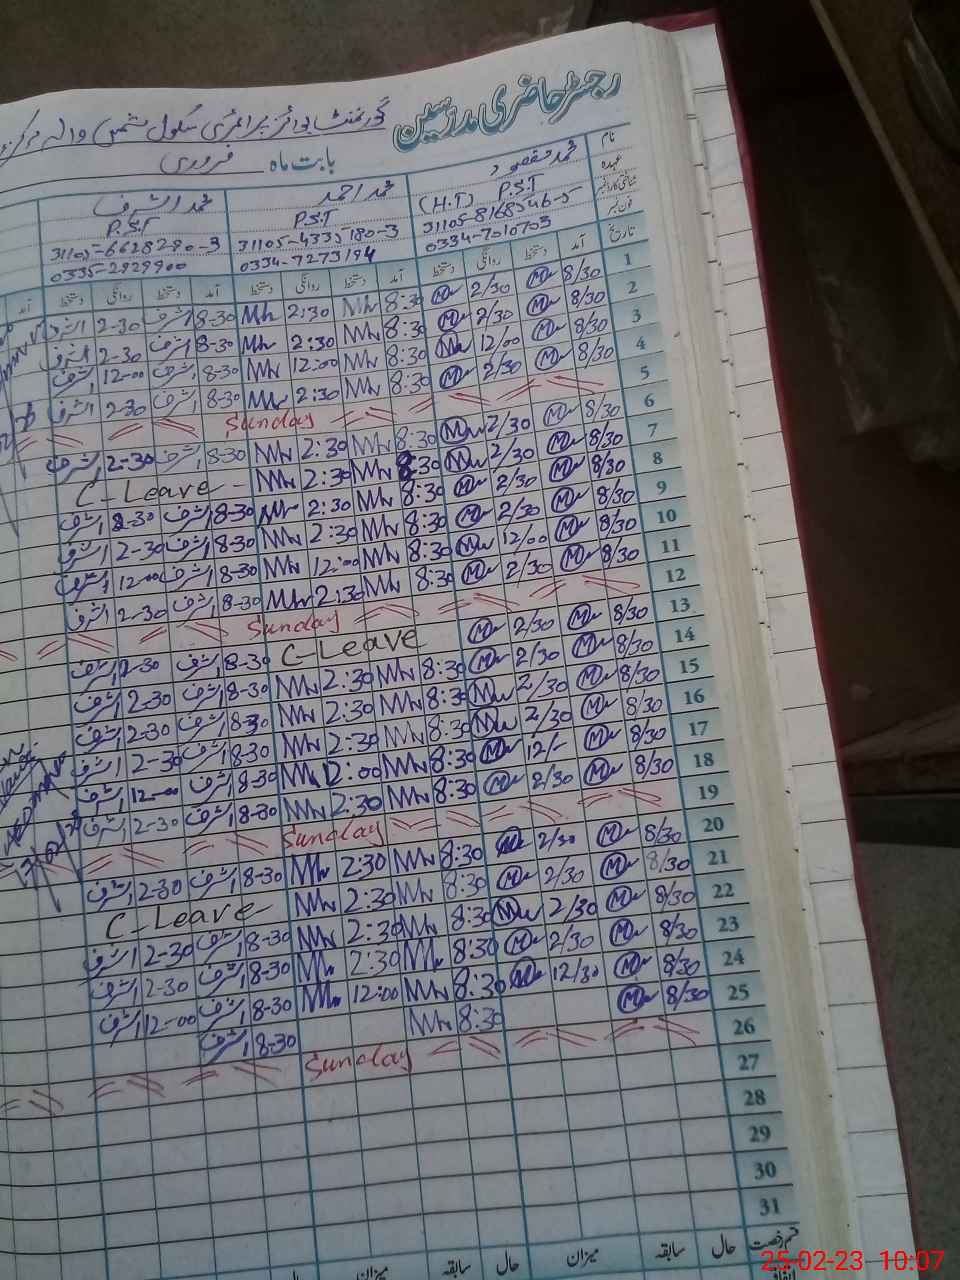 رجسٹر حاضری مدرسین
گورنمنٹ بوائز پرائمری سکول شمس والہ مرکز
بابت ماہ فروری
نام محمد مقصود محمد احمد محمد اشرف
عہدہ P.S.T (H.T) P.S.T P.S.T
شناختی کارڈ نمبر 31105-8168546-5 31105-4335180-3 31105-6628290-3
فون نمبر 0334-7010703 0334-7273194 0335-2929900
تاریخ آمد دستخط روانگی دستخط آمد دستخط روانگی دستخط آمد دستخط روانگی دستخط آمد
1 8/30 2/30 8:30 2:30 8-30 اشرف 2-30 اشرف
2 8/30 2/30 8:30 2:30 8-30 اشرف 2-30 اشرف
3 8/30 12/00 8:30 12:00 8-30 اشرف 12-00 اشرف
4 8/30 2/30 8:30 2:30 8-30 اشرف 2-30 اشرف
5 Sunday
6 8/30 2/30 8:30 2:30 8-30 اشرف 2-30 اشرف
7 8/30 2/30 8:30 2:30 C-Leave
8 8/30 2/30 8:30 2:30 8-30 اشرف 2-30 اشرف
9 8/30 2/30 8:30 2:30 8-30 اشرف 2-30 اشرف
10 8/30 12/00 8:30 12:00 8-30 اشرف 12-00 اشرف
11 8/30 2/30 8:30 2:30 8-30 اشرف 2-30 اشرف
12 Sunday
13 8/30 2/30 C-Leave 8-30 اشرف 2-30 اشرف
14 8/30 2/30 8:30 2:30 8-30 اشرف 2-30 اشرف
15 8/30 2/30 8:30 2:30 8-30 اشرف 2-30 اشرف
16 8/30 2/30 8:30 2:30 8-30 اشرف 2-30 اشرف
17 8/30 12/- 8:30 12:00 8-30 اشرف 12-00 اشرف
18 8/30 2/30 8:30 2:30 8-30 اشرف 2-30 اشرف
19 Sunday
20 8/30 2/30 8:30 2:30 8-30 اشرف 2-30 اشرف
21 8/30 2/30 8:30 2:30 C-Leave
22 8/30 2/30 8:30 2:30 8-30 اشرف 2-30 اشرف
23 8/30 2/30 8:30 2:30 8-30 اشرف 2-30 اشرف
24 8/30 12/30 8:30 12:00 8-30 اشرف 12-00 اشرف
25 8/30 8:30 8-30 اشرف
26 Sunday
27
28
29
30
31
قسم رخصت حال سابقہ میزان حال سابقہ میزان حال
اتفاقیہ
25-02-23 10:07